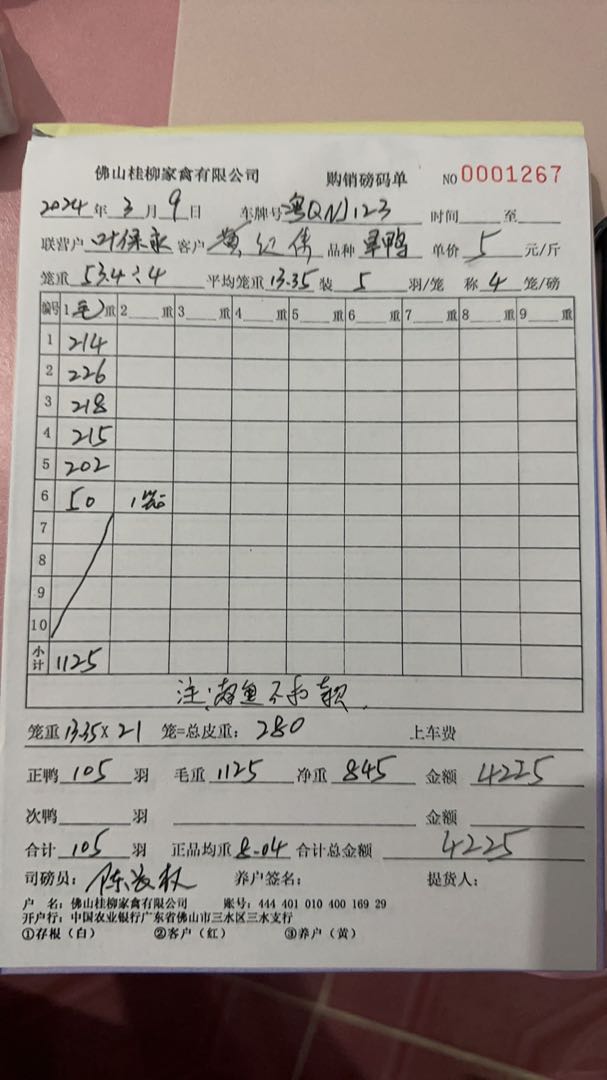 佛山桂柳家禽有限公司 购销磅码单 NO 0001267
2024年3月9日 车牌号 粤QNJ123 时间 至
联营户 叶保永 客户 黄红伟 品种 单价 5 元/斤
笼重 53.4÷4 平均笼重 13.35 装 5 羽/笼 称 4 笼/磅
编号 1 毛 重 2 重 3 重 4 重 5 重 6 重 7 重 8 重 9 重
1 214
2 226
3 218
4 215
5 202
6 50 1笼
7
8
9
10
小计 1125
注: 不扣款
笼重 13.35×21 笼=总皮重: 280 上车费
正鸭 105 羽 毛重 1125 净重 845 金额 4225
次鸭 羽 金额
合计 105 羽 正品均重 8.04 合计总金额 4225
司磅员: 陈 权 养户签名: 提货人:
户 名: 佛山桂柳家禽有限公司 账号: 444 401 010 400 169 29
开户行: 中国农业银行广东省佛山市三水区三水支行
①存根(白) ②客户(红) ③养户(黄)